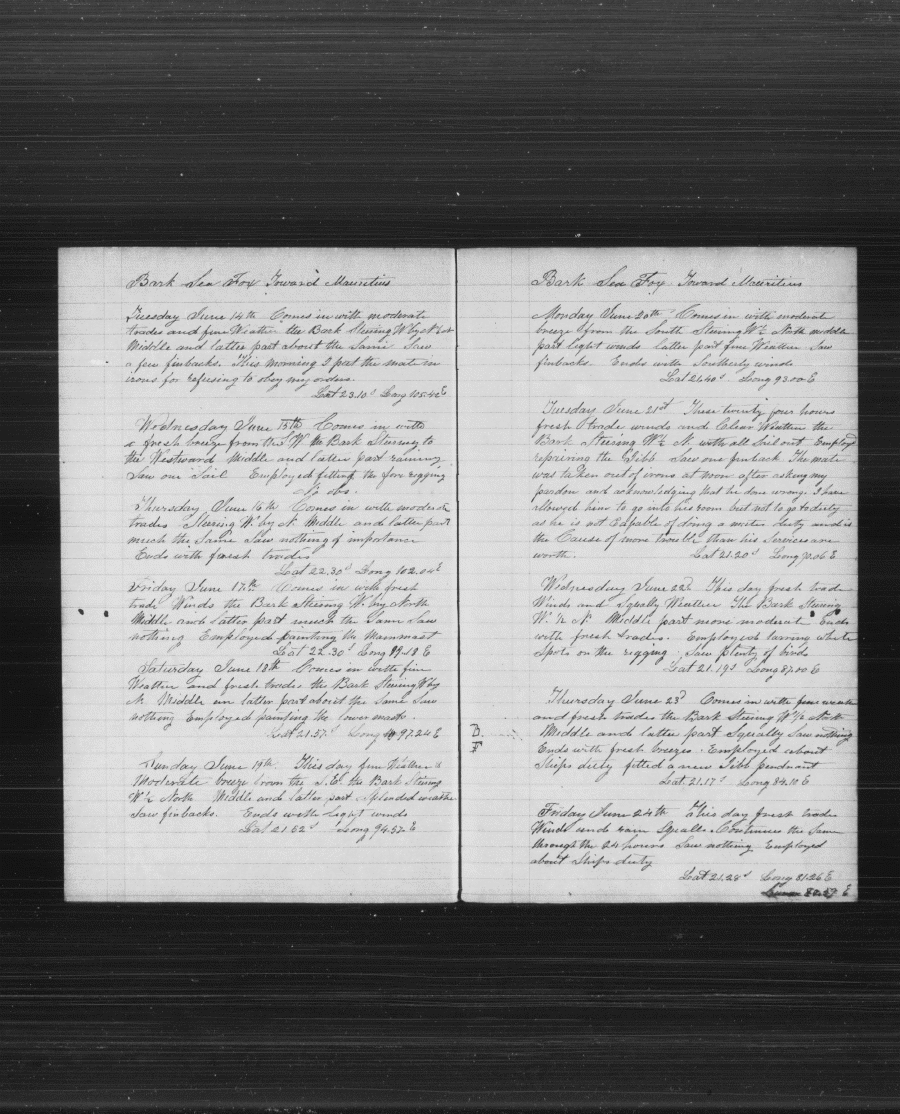 Bark Sea Fox Toward Mauritius
Tuesday June 14th Comes in with moderate
trades and fine Weather the Bark Steering W by N
Middle and latter part about the Same Saw
a few finbacks. This morning I put the mate in
irons for refusing to obey my orders.
Lat 23.10 S Long 105.42 E
Wednesday June 15th Comes in with
a fresh breeze from the W the Bark Steering to
the Westward Middle and latter part raining
Saw one Sail Employed fitting the fore rigging
No obs.
Thursday June 16th Comes in with moderate
trades Steering W. by N. Middle and latter part
much the Same Saw nothing of importance
Ends with fresh trades
Lat 22.30 S Long 102.04 E
Friday June 17th Comes in with fresh
trade Winds the Bark Steering W. by North
Middle and latter part much the Same Saw
nothing Employed painting the Mainmast
Lat 22.30 S Long 99.18 E
Saturday June 18th Comes in with fine
Weather and fresh trades the Bark Steering W by
N. Middle an latter part about the Same Saw
nothing Employed painting the lower masts.
Lat 21.57 S Long 97.24 E
Sunday June 19th This day fine Weather &
Moderate breeze from the S.E. the Bark Steering
W ½ North Middle and latter part splended weather
Saw finbacks. Ends with light winds
Lat 21.52 S Long 94.57 E
Bark Sea Fox Toward Mauritius
Monday June 20th Comes in with moderate
breeze from the South Steering W ½ North middle
part light winds latter part fine Weather Saw
finbacks Ends with Southerly winds
Lat 21.40 S Long 93.00 E
Tuesday June 21st These twenty four hours
fresh trade winds and Clear Weather the
Bark Steering W ½ N. with all Sail out Employed
repairing the Jibb Saw one finback The mate
was taken out of irons at noon after asking my
pardon and acknowledging that he done wrong. I have
allowed him to go into his room but not to go to duty
as he is not Capable of doing a mates duty and is
the Cause of more trouble than his Services are
worth.
Lat 21.20 S Long 90.06 E
Wednesday June 22d This day fresh trade
Winds and Squally Weather The Bark Steering
W. ½ N. Middle part more moderate Ends
with fresh trades. Employed tarring white
Spots on the rigging. Saw plenty of birds
Lat 21.19 S Long 87.00 E
Thursday June 23d Comes in with fine weather
and fresh trades the Bark Steering W ½ North
Middle and latter part Squally Saw nothing
Ends with fresh breezes. Employed about
Ships duty fitted a new Jibb pendant
Lat 21.17 S Long 84.10 E
D.
F
Friday June 24th This day fresh trade
Winds and rain Squalls Continues the Same
through the 24 hours Saw nothing Employed
about Ships duty
Lat 21.28 S Long 81.26 E
80.57 E